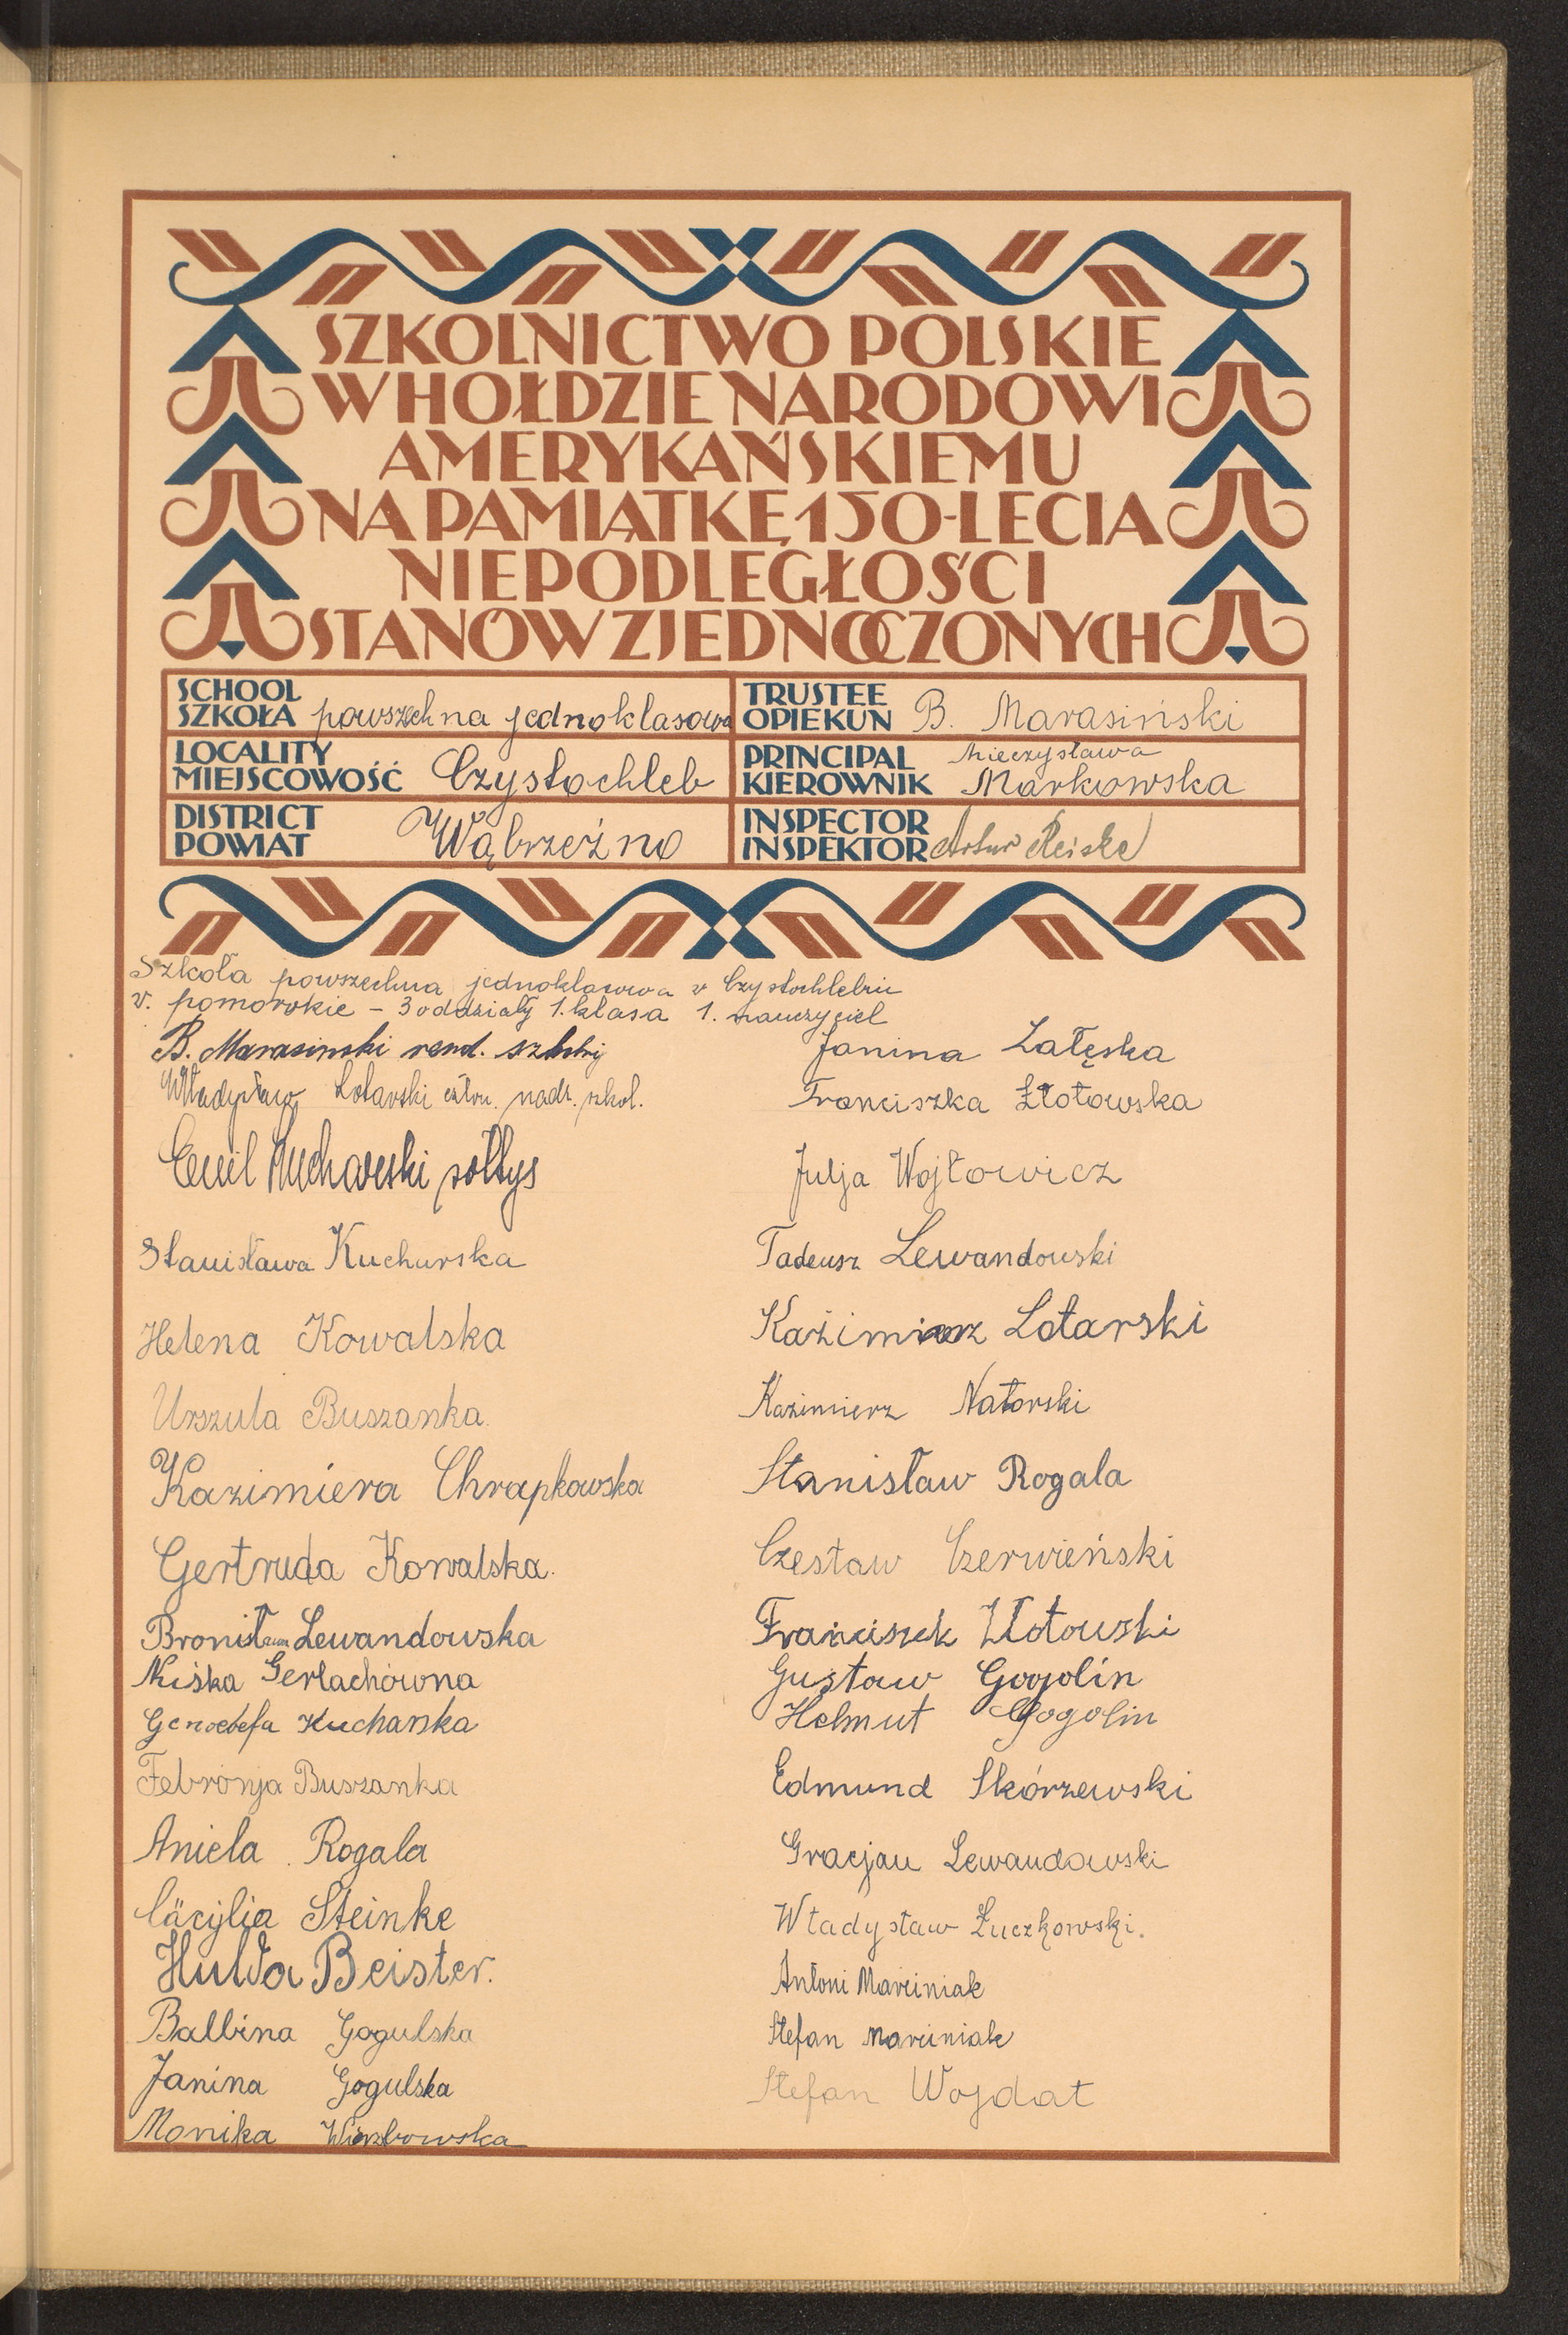 SZKOLNICTWO POLSKIE
W HOŁDZIE NARODOWI
AMERYKAŃSKIEMU
NA PAMIĄTKĘ 150-LECIA
NIEPODLEGŁOŚCI
STANÓW ZJEDNOCZONYCH
SCHOOL
SZKOŁA powszechna jednoklasowa
TRUSTEE
OPIEKUN B. Marasiński
LOCALITY
MIEJSCOWOŚĆ Czystochleb
PRINCIPAL Mieczysława
KIEROWNIK Markowska
DISTRICT
POWIAT Wąbrzeźno
INSPECTOR
INSPEKTOR Artur Reiske
Szkoła powszechna jednoklasowa w Czystochlebiu
w. pomorskie – 3 oddziały 1. klasa 1. nauczyciel
B. Marasinski rend.
Władysław Lotarski człon. nadz. szkol.
Emil Kucharski sołtys
Stanisława Kucharska
Helena Kowalska
Urszula Buszanka.
Kazimiera Chrapkowska
Gertruda Kowalska.
Bronisława Lewandowska
Miśka Gerlachówna
Genowefa Kucharska
Febronja Buszanka
Aniela Rogala
Cäcylia Steinke
Hulda Beister.
Balbina Gogulska
Janina Gogulska
Monika Wierzbowska
Janina Załęska
Franciszka Złotowska
Julja Wojtowicz
Tadeusz Lewandowski
Kaźimierz Lotarski
Kazimierz Natorski
Stanisław Rogala
Czesław Czerwieński
Franciszek Złotowski
Gustaw Gogolin
Helmut Gogolin
Edmund Skórzewski
Gracjan Lewandowski
Władysław Łuczkowski.
Antoni Marciniak
Stefan Marciniak
Stefan Wojdat